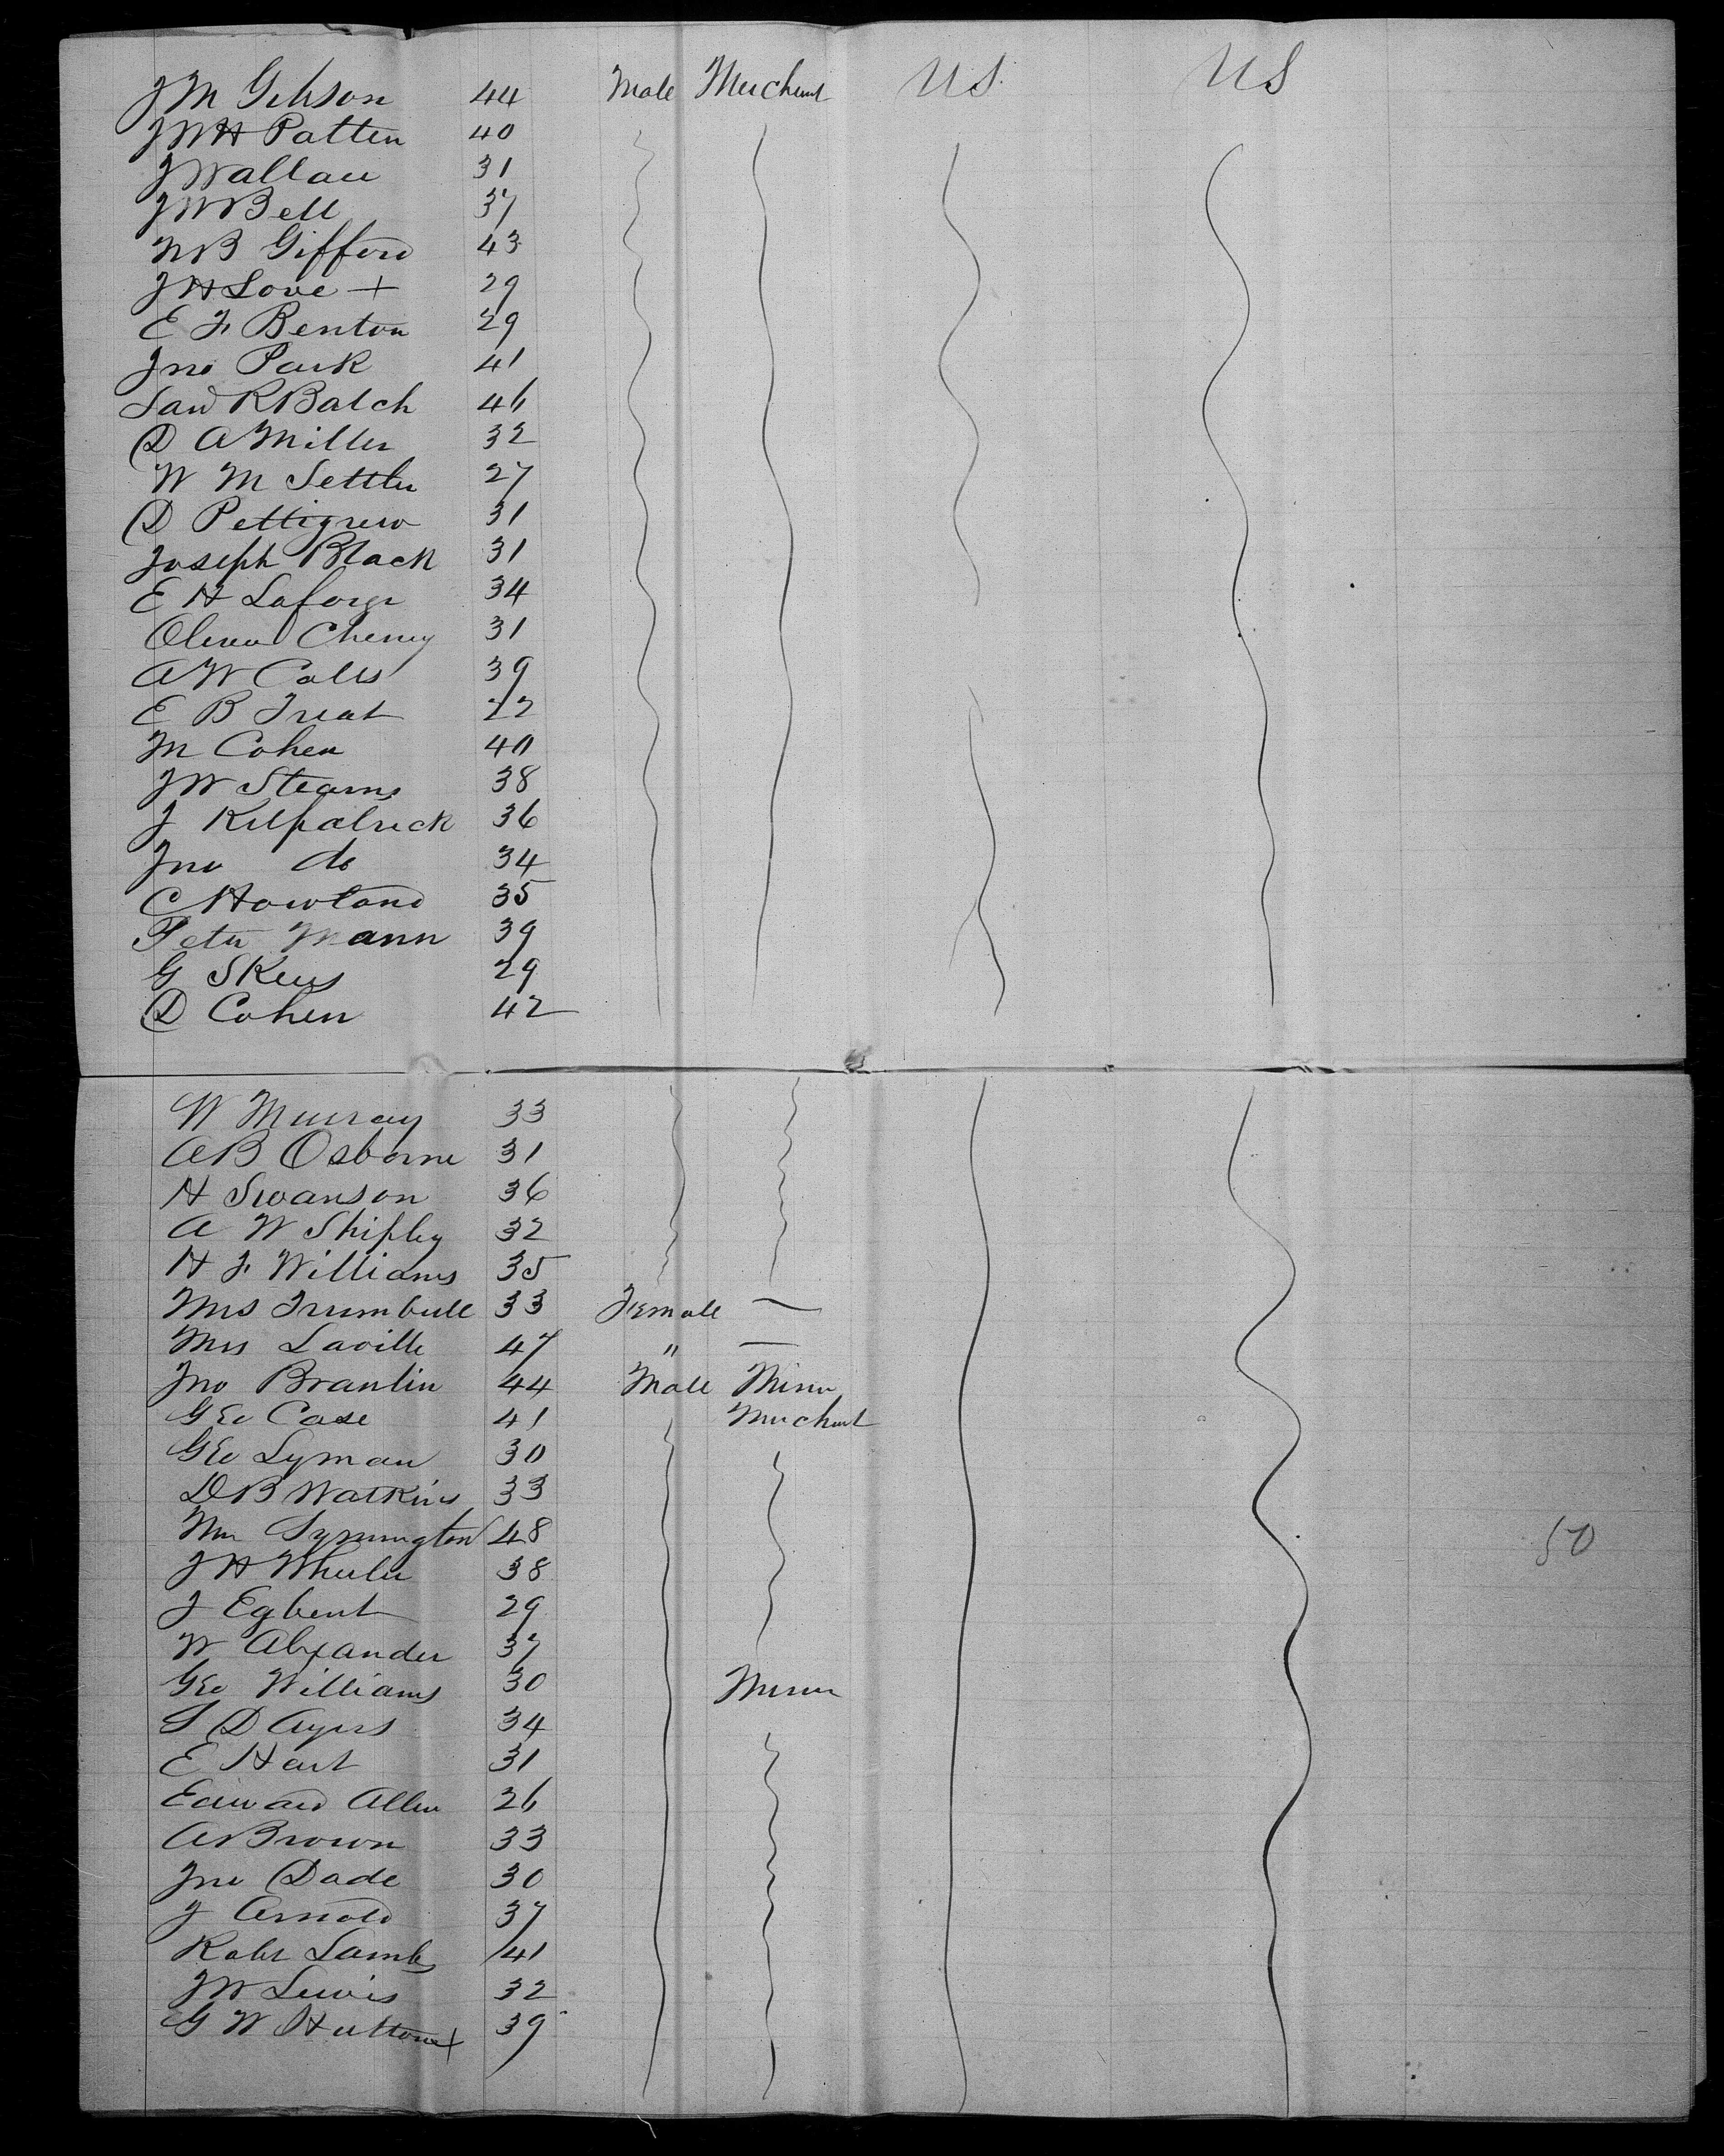 J M Gibson 44 Male Merchant US US
J W H Patten 40
J Wallace 31
J W Bell 37
N B Gifford 43
J H Love + 29
E F Benton 29
Jno Park 41
R Balch 46
D A Miller 32
W M Settler 27
D Pettigrew 31
Joseph Black 31
E H Laforge 34
Oliver Cheney 31
A W Coles 39
E B Treat 22
M Cohen 40
J W Stearns 38
J Kilpatrick 36
Jno do 34
C Howland 35
Peter Mann 39
G Skews 29
D Cohen 42
W Murray 33
A B Osborne 31
H Swanson 36
A W Shipley 32
H F Williams 35
Mrs Trumbull 33 Female —
Mrs Laville 47 " —
Jno Branlin 44 Male Miner
Geo Case 41 Merchant
Geo Lyman 30
D B Watkins 33
Wm Symington 48
J H Wheeler 38
J Egbert 29
W Alexander 37
Geo Williams 30 Miner
S D Ayers 34
E Hart 31
Edward Allen 26
A Brown 33
Jno Dade 30
J Arnold 37
Robt Lamb 41
J W Lewis 32
G W Hutton + 39
50